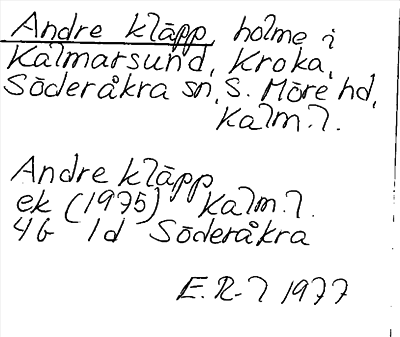 Andre kläpp, holme i
Kalmarsund, Kroka,
Söderåkra sn, S. Möre hd,
Kalm. l.
Andre kläpp
ek (1975) Kalm. l.
4G 1d Söderåkra
E.R-l 1977